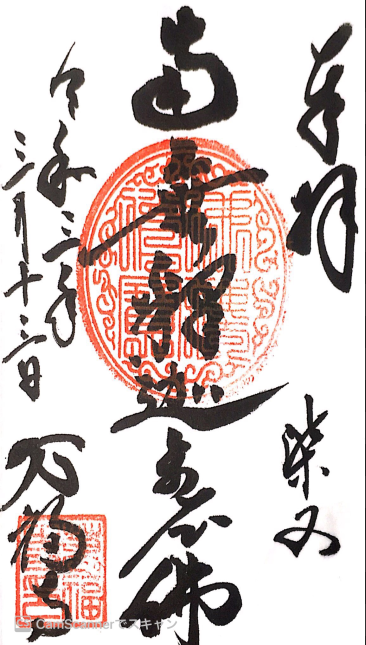 奉拝
柴又
南無釋迦牟尼佛
令和三年
三月十三日
万福寺
CS CamScannerでスキャン